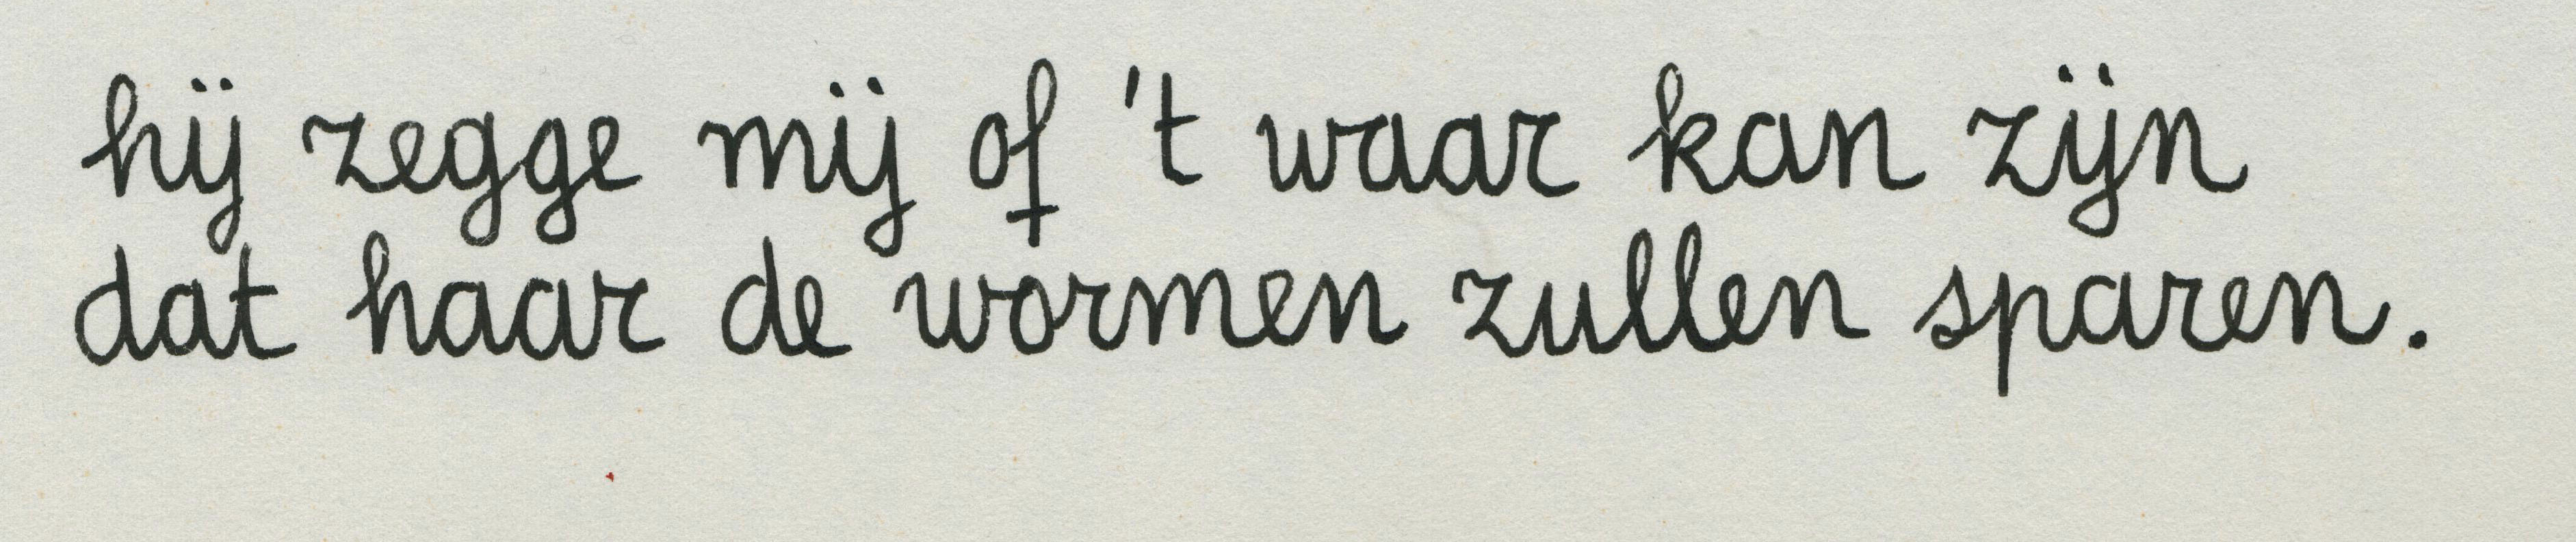 hij zegge mij of 't waar kan zijn
dat haar de wormen zullen sparen.